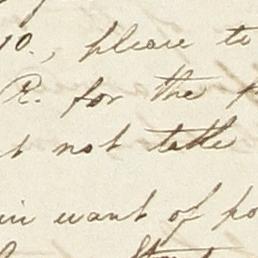 10., please to
R. for the
not take
in want of